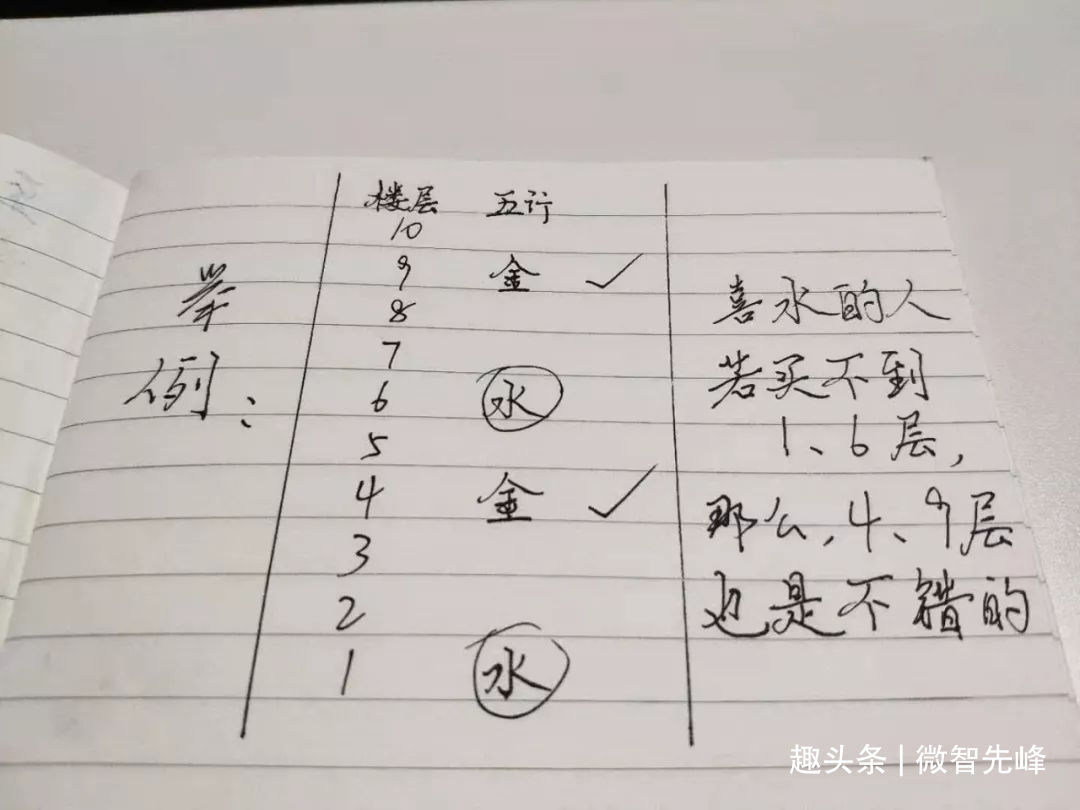 举
例：
楼层 五行
10
9 金 ✓
8
7
6 水
5
4 金 ✓
3
2
1 水
喜水的人
若买不到
1、6层，
那么，4、9层
也是不错的
趣头条 | 微智先峰